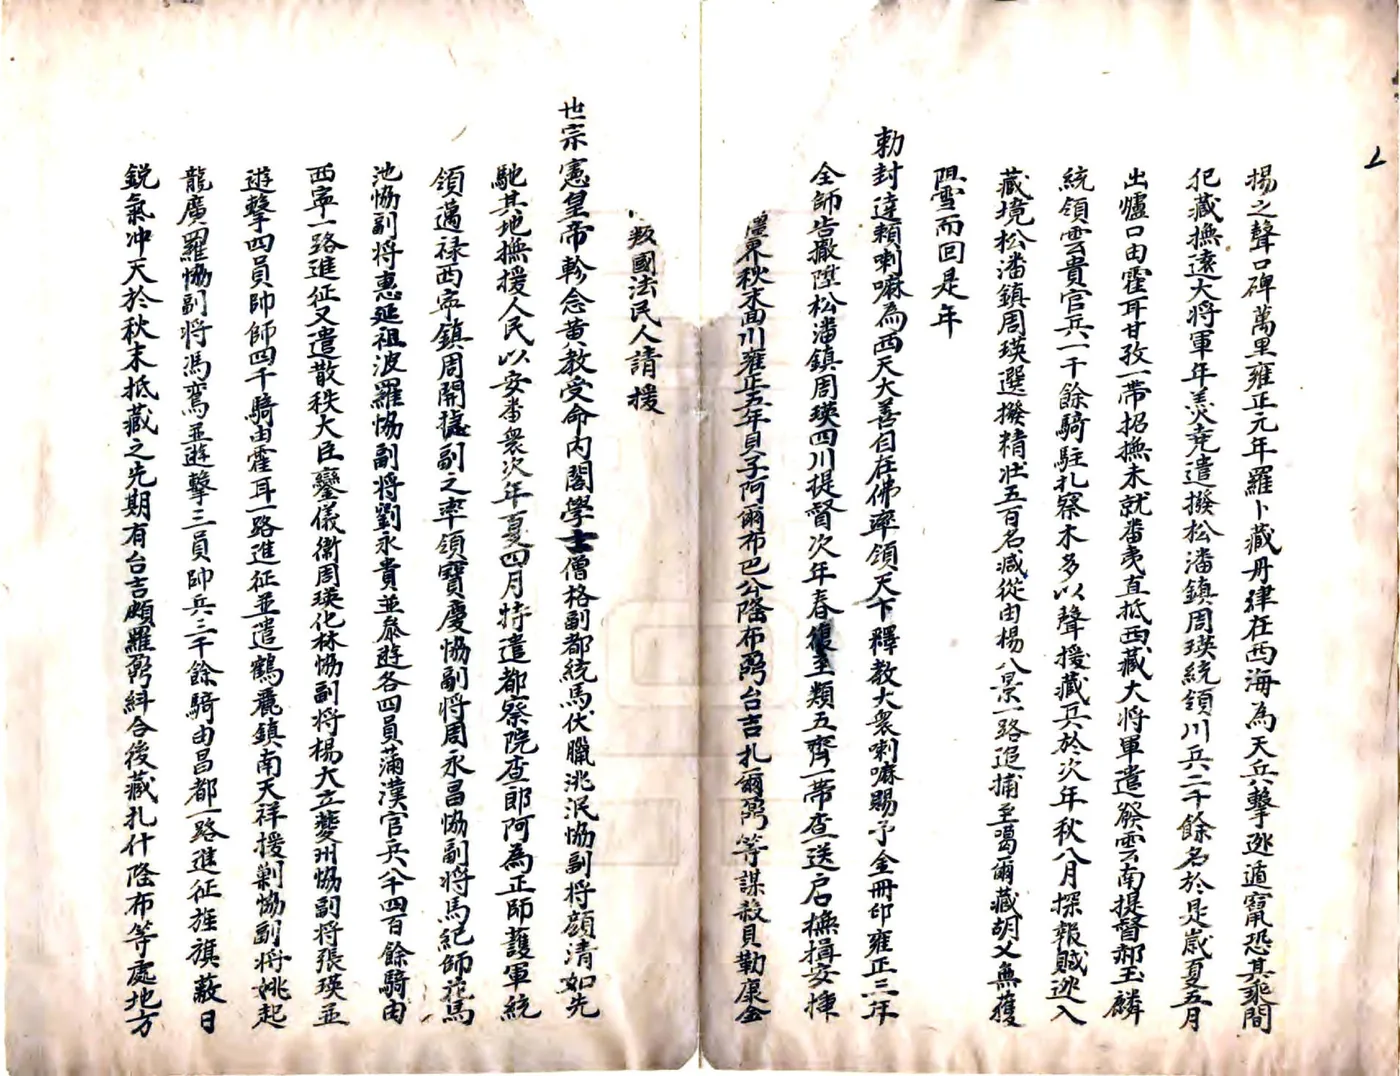 揚之聲口碑萬里雍正元年羅卜藏丹津在西海為天兵擊逊遁竄恐其乘間
犯藏撫遠大將軍年羹尭遣撥松潘鎮周瑛統領川兵二千餘名於是歲夏五月
出爐口由霍耳甘孜一帶招撫未就畨夷直抵西藏大將軍遣發雲南提督郝玉麟
統領雲貴官兵一千餘騎駐扎察木多以聲援藏兵於次年秋八月探報賊逊入
藏境松潘鎮周瑛選撥精壯五百名减從由楊八景一路追捕至噶爾藏胡乂無獲
阻雪而回是年
勅封達賴喇嘛為西天大善自在佛率領天下釋教大衆喇嘛賜予全冊印雍正三年
全師告撤陞松潘鎮周瑛四川提督次年春復至類五齊一帶查送戶撫揖安揷
疆界秋末囬川雍正五年貝子阿爾布巴公隆布鼐台吉扎爾鼐等謀殺貝勒康金
叛國法民人請援
世宗憲皇帝軫念黄教受命内閣學士僧格副都統馬伏臘洮泯協副将顔清如先
馳其地撫援人民以安畨衆次年夏四月特遣都察院查郎阿為正師䕶軍統
領邁禄西寜鎮周開捷副之率領寶慶協副将周永昌協副将馬紀師花馬
池協副将惠延祖波羅協副将劉永貴並叅遊各四員滿漢官兵八千四百餘騎由
西寜一路進征又遣散秩大臣鑾儀衛周瑛化林協副将楊大立夔州協副将張瑛並
遊擊四員帥師四千騎由霍耳一路進征並遣鶴麗鎮南天祥援剿協副将姚起
龍廣羅協副将馮鸞並遊擊三員帥兵三千餘騎由昌都一路進征旌旗蔽日
鋭氣冲天於秋末抵藏之先期有台吉頗羅鼐糾合後藏扎什隆布等處地方